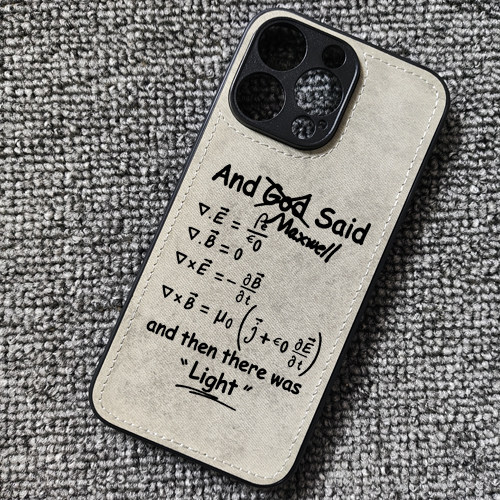 And God Said
Maxwell
∇·E⃗ = ρt/ϵ0
∇·B⃗ = 0
∇×E⃗ = -∂B⃗/∂t
∇×B⃗ = μ0(j⃗+ϵ0 ∂E⃗/∂t)
and then there was
"Light"